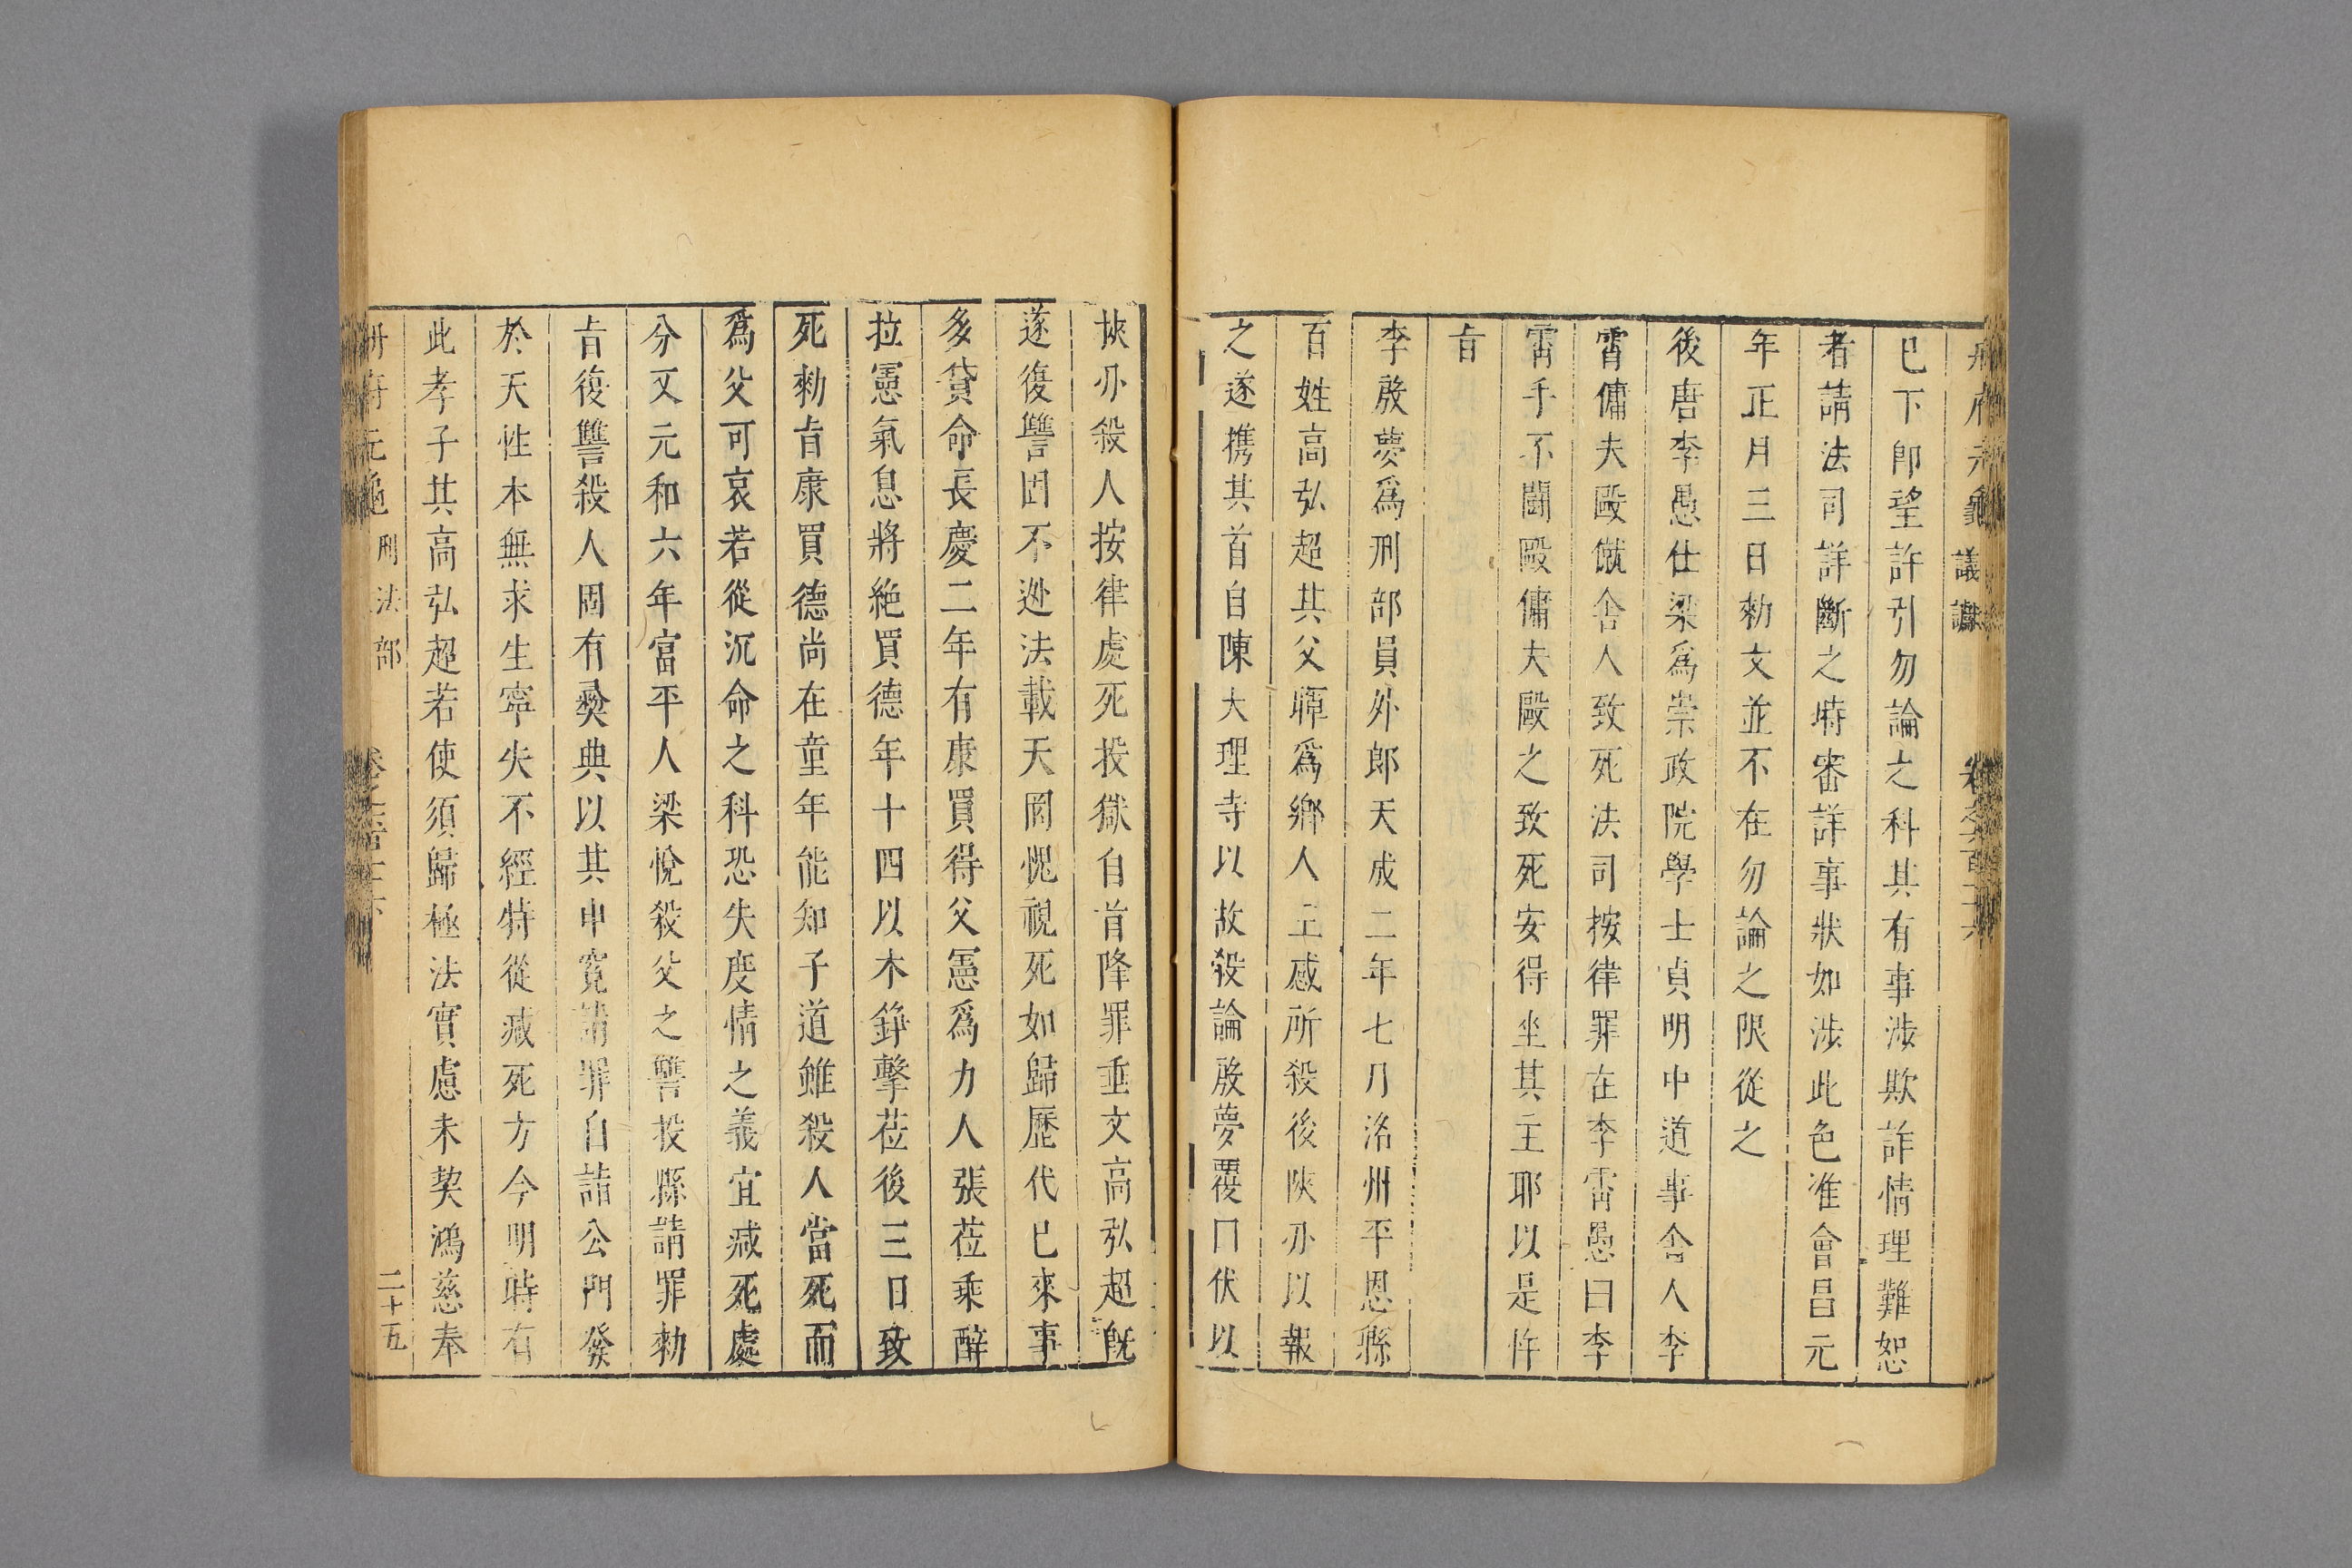 冊府元龜 議讞 卷之六百十六
已下卽望許引勿論之科其有事涉欺詐情理難恕
者請法司詳斷之時審詳事狀如涉此色准會昌元
年正月三日勑文並不在勿論之限從之
後唐李愚仕梁爲崇政院學士貞明中道事舍人李
霄傭夫毆僦舍人致死法司按律罪在李霄愚曰李
霄手不鬬毆傭夫毆之致死安得坐其主耶以是忤
旨
李殷夢爲刑部員外郞天成二年七月洛州平恩縣
百姓高弘超其父暉爲鄉人王感所殺後陜刃以報
之遂携其首自陳大理寺以故殺論殷夢覆曰伏以
挾刃殺人按律處死投獄自首降罪垂文高弘超旣
遂復讐固不逃法載天罔愧視死如歸歷代已來事
多貸命長慶二年有康買得父憲爲力人張莅乘醉
拉憲氣息將絶買德年十四以木鍤擊莅後三日致
死勑旨康買德尚在童年能知子道雖殺人當死而
爲父可哀若從沉命之科恐失度情之義宜減死處
分又元和六年富平人梁悅殺父之讐投縣請罪勑
旨復讐殺人固有彝典以其申寃請罪自詣公門發
於天性本無求生寧失不經特從減死方今明時有
此孝子其高弘超若使須歸極法實慮未契鴻慈奉
冊府元龜 刑法部 卷之六百十六 二十五